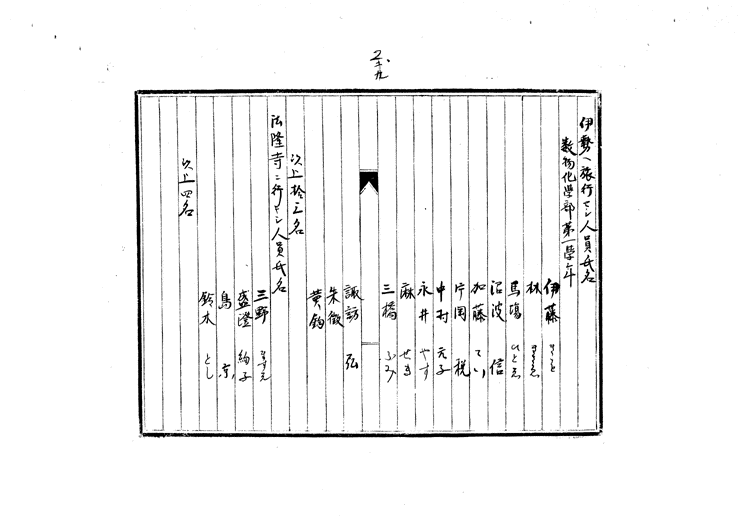 二ノ九
伊勢へ旅行セシ人員氏名
数物化学部第一學年
伊藤
林
馬場 ひとゑ
沼波 信
加藤 てい
片岡 税
中村 元子
永井 やす
麻 せき
三橋 ふみ
諏訪 弘
朱徴
黄鈞
以上拾三名
法隆寺ニ行セシ人員氏名
三野 ますえ
盛澄 絢子
島 京
鈴木 とし
以上四名